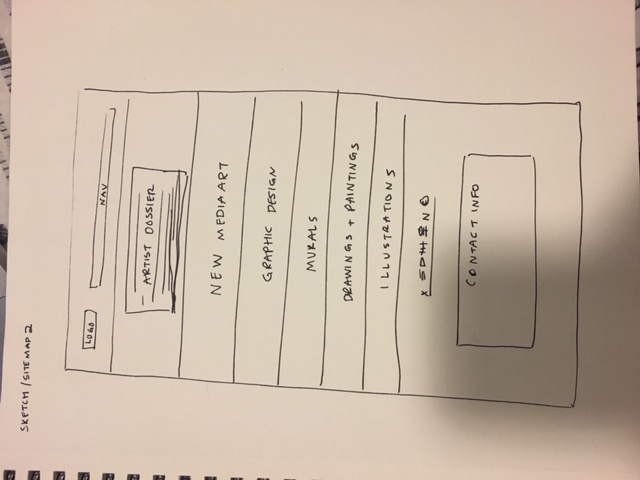 SKETCH / SITEMAP 2
LOGO
NAV
ARTIST DOSSIER
NEW MEDIA ART
GRAPHIC DESIGN
MURALS
DRAWINGS + PAINTINGS
ILLUSTRATIONS
CONTACT INFO